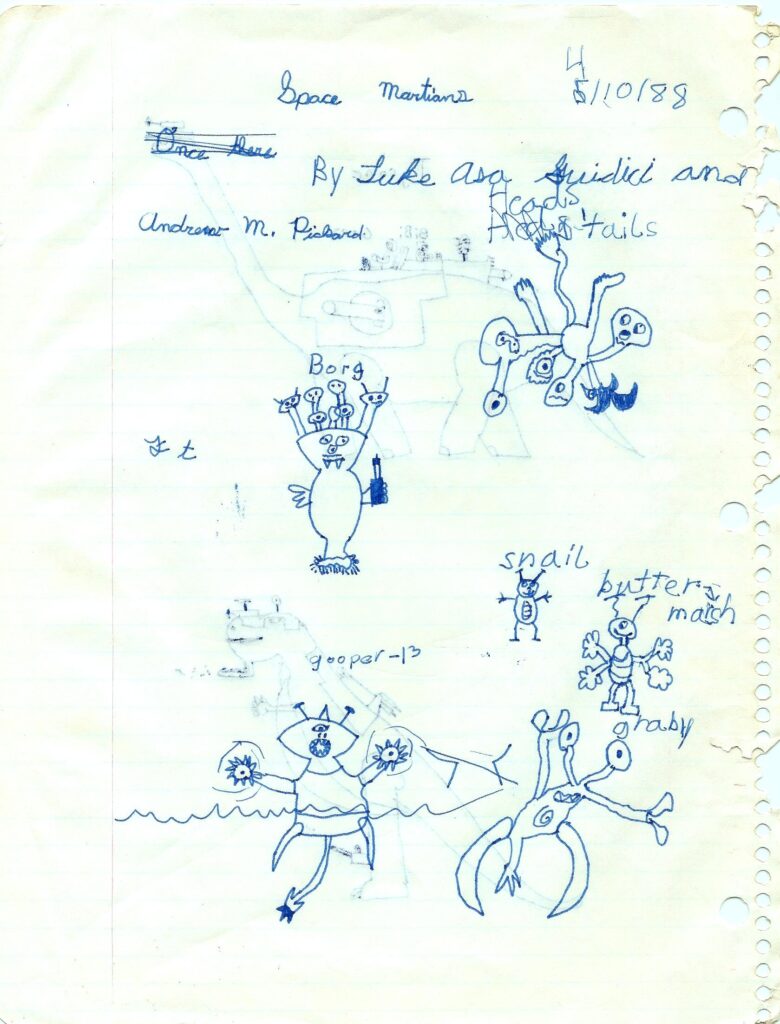 Space Martians
4/10/88
Once there
By Luke Asa Guidici and
Andrew M. Pickard
Heads
'tails
Borg
I t
snail
butter-
marsh
gooper-13
graby